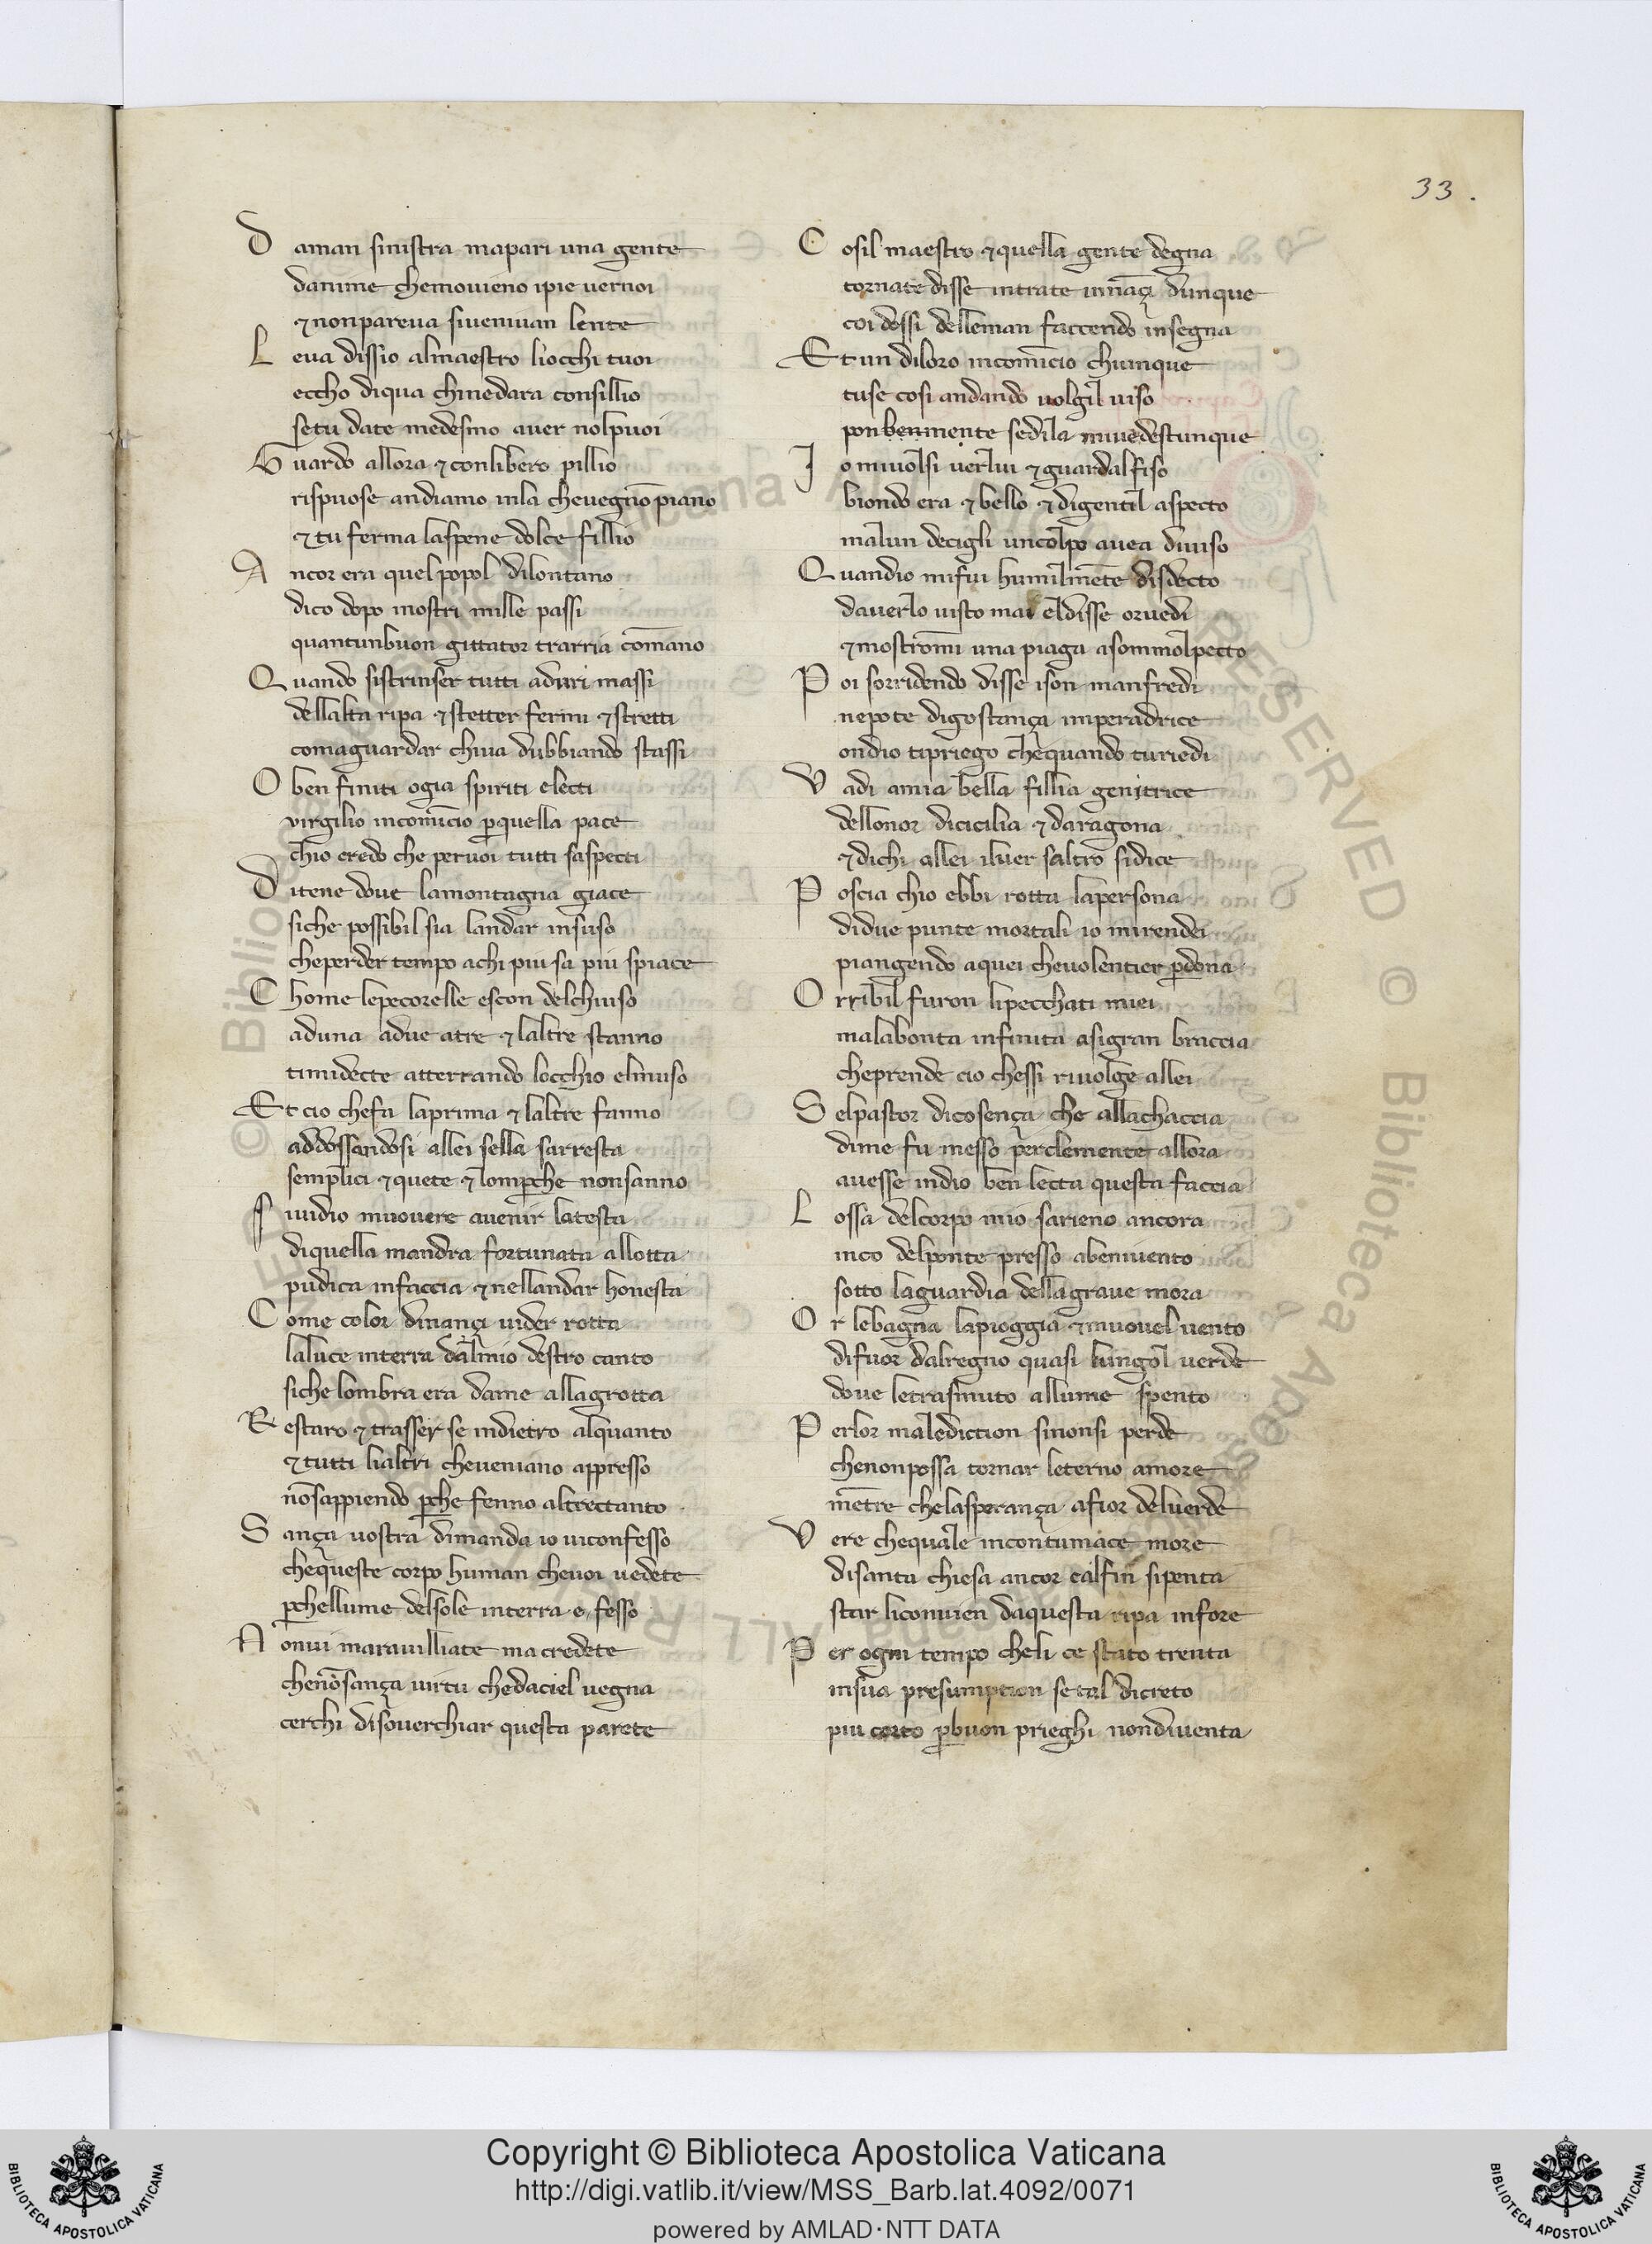 33.
D aman sinistra mapari una gente
danime chemovieno ipie uernoi
⁊ nonpareua siueniuan lente
L eua dissio almaestro liocchi tuoi
eccho diqua chinedara consillio
setu date medesmo auer nolpuoi
G uardo allora ⁊ conlibero pillio
rispuose andiamo inla cheuegno͂ piano
⁊ tu ferma laspene dolce fillio
A ncor era quel popol dilontano
dico dopo inostri mille passi
quantunbuon gittator trarria co͂mano
Q uando sistrinser tutti aduri massi
dellalta ripa ⁊ stetter fermi ⁊ stretti
comaguardar chiua dubbiando stassi
O ben finiti ogia spiriti electi
virgilio incomı͂cio ꝑquella pace
chio credo che peruoi tutti saspecti
D itene doue lamontagna giace
siche possibil sia landar insuso
cheperder tempo achi piu sa piu spiace
C home lepecorelle escon delchiuso
aduna adue atre ⁊ laltre stanno
timidecte atterrando locchio elmuso
Et cio chefa laprima ⁊ laltre fanno
addossandosi allei sella sarresta
semplici ⁊ quete ⁊ lomꝑche nonsanno
S iuidio muouere auenir latesta
diquella mandra fortunata allotta
pudica infaccia ⁊ nellandar honesta
C ome color dinançi uider rotta
laluce interra dalmio destro canto
siche lombra era dame allagrotta
R estaro ⁊ trasser se indietro alquanto
⁊ tutti lialtri cheueniano appresso
no͂sappiendo ꝑche fenno altrectanto
S ança uostra dimanda io uiconfesso
chequeste corpo human cheuoi uedete
ꝑchellume delsole interra e fesso
N onui marauilliate ma credete
cheno͂sança uirtu chedaciel uegna
cerchi disouerchiar questa parete
C osil maestro ⁊ quella gente degna
tornate disse intrate inna͂çi dunque
coi dossi delleman faccendo insegna
Et un diloro incomı͂cio chiunque
tuse cosi andando uolgil uiso
ponbenmente sedila miuedestunque
I o miuolsi uerlui ⁊ guardalfiso
biondo era ⁊ bello ⁊ digentil aspecto
malun decigli uncolpo auea diuiso
Q uandio mifui humilme͂te disdecto
dauerlo uisto mai eldisse oruedi
⁊ mostro͂mi una piaga asommolpecto
P oi sorridendo disse ison manfredi
nepote digostança imperadrice
ondio tipriego chequando turiedi
V adi amia bella fillia genitrice
dellonor dicicilia ⁊ daragona
⁊ dichi allei iluer saltro sidice
P oscia chio ebbi rotta lapersona
didue punte mortali io mirendei
piangendo aquei cheuolentier ꝑdona
O rribil furon lipecchati miei
malabonta infinita asigran braccia
cheprende cio chessi riuolge allei
S elpastor dicosença che allachaccia
dime fu messo perclemente allora
auesse indio ben lecta questa faccia
L ossa delcorpo mio sarieno ancora
inco delponte presso abeniuento
sotto laguardia dellagraue mora
O r lebagna lapioggia ⁊ muouel uento
difuor dalregno quasi lungol uerde
doue letrasmuto allume spento
P erlor malediction sinonsi perde
chenonpossa tornar leterno amore
me͂tre chelasperança afior deluerde
V ere chequale incontumace more
disanta chiesa ancor calfin sipenta
star liconuien daquesta ripa infore
P er ogni tempo cheli ce stato trenta
insua presumption se tal dicreto
piu corto ꝑbuon prieghi nondiuenta
Copyright © Biblioteca Apostolica Vaticana
http://digi.vatlib.it/view/MSS_Barb.lat.4092/0071
powered by AMLAD·NTT DATA
BIBLIOTECA APOSTOLICA VATICANA
BIBLIOTECA APOSTOLICA VATICANA